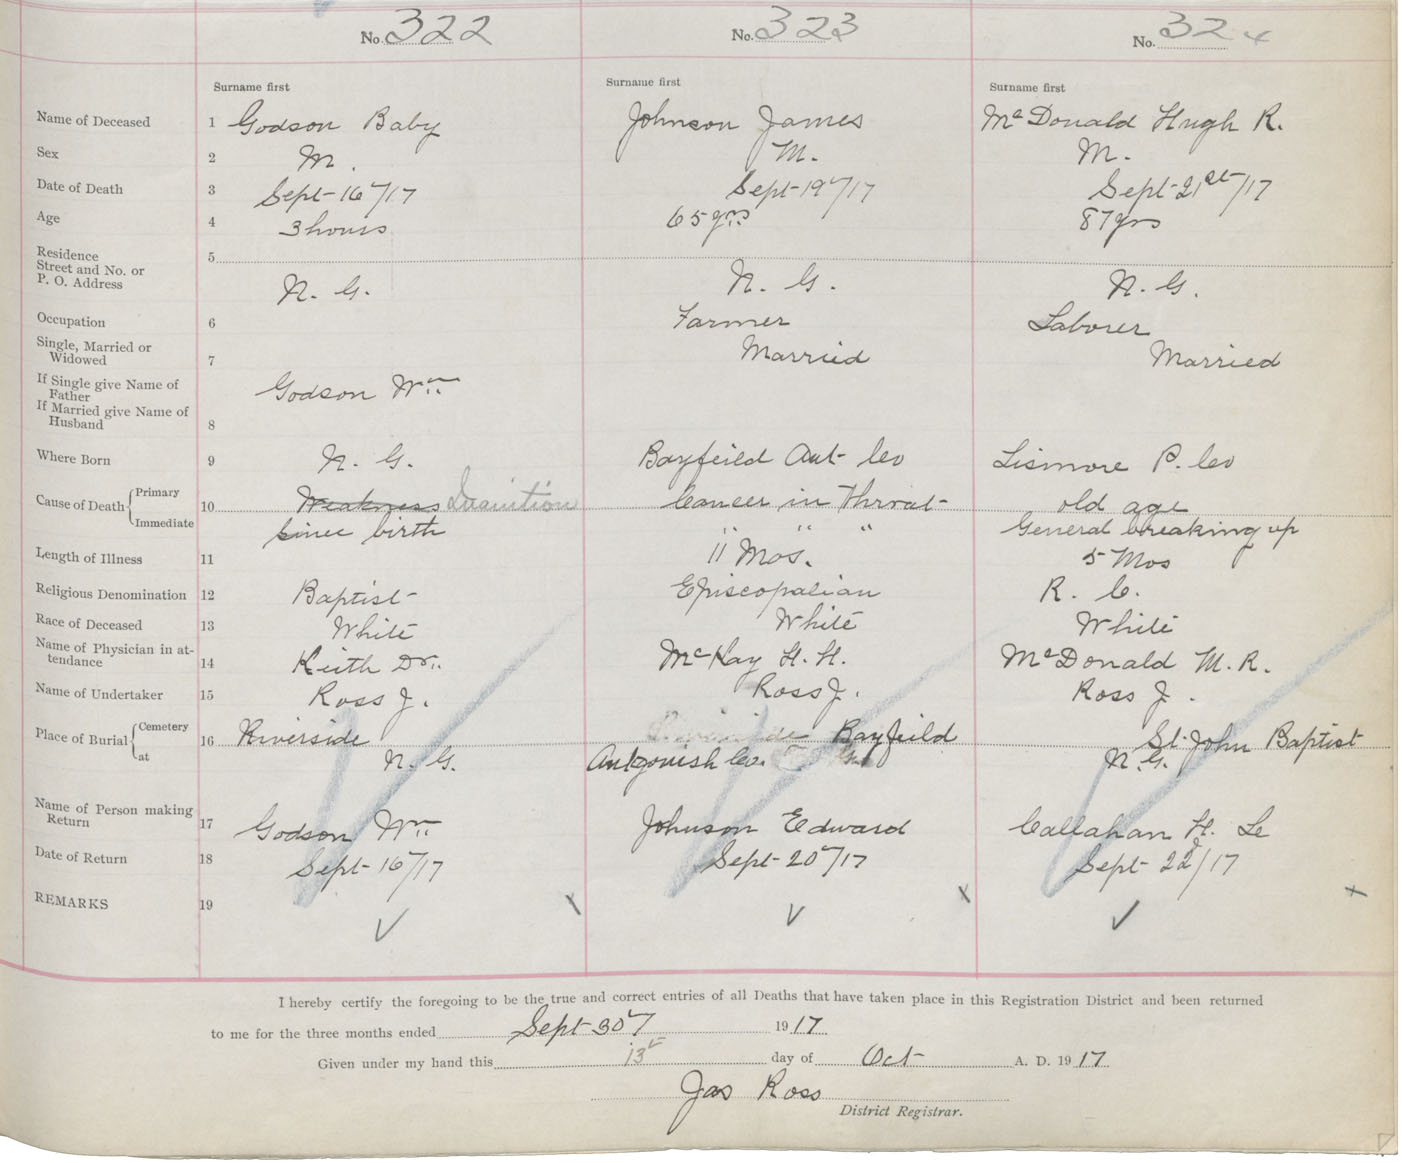 No. 322 No. 323 No. 324
Surname first Surname first Surname first
Name of Deceased 1 Godson Baby Johnson James McDonald Hugh R.
Sex 2 M. M. M.
Date of Death 3 Sept-16th/17 Sept-19th/17 Sept-21st/17
Age 4 3 hours 65 yrs 87 yrs
Residence 5
Street and No. or
P. O. Address N. G. N. G. N. G.
Occupation 6 Farmer Laborer
Single, Married or
Widowed 7 Married Married
If Single give Name of
Father Godson Wm
If Married give Name of
Husband 8
Where Born 9 N. G. Bayfeild Ant- Co Lismore P. Co
Cause of Death Primary 10 Weakness Inanition Cancer in Throat- old age
Immediate since birth " " " General breaking up
Length of Illness 11 11 Mos. 5 Mos
Religious Denomination 12 Baptist- Episcopalian R. C.
Race of Deceased 13 White White White
Name of Physician in at-
tendance 14 Keith Dr. McKay H. H. McDonald M. R.
Name of Undertaker 15 Ross J. Ross J. Ross J.
Place of Burial Cemetery 16 Riverside Bayfeild St. John Baptist
at N. G. Antgonish Co. N. G.
Name of Person making
Return 17 Godson Wm Johnson Edward Callahan H. Le
Date of Return 18 Sept-16th/17 Sept-20th/17 Sept 22d/17
REMARKS 19
I hereby certify the foregoing to be the true and correct entries of all Deaths that have taken place in this Registration District and been returned
to me for the three months ended Sept-30th 1917
Given under my hand this 13th day of Oct- A. D. 1917
Jas Ross
District Registrar.